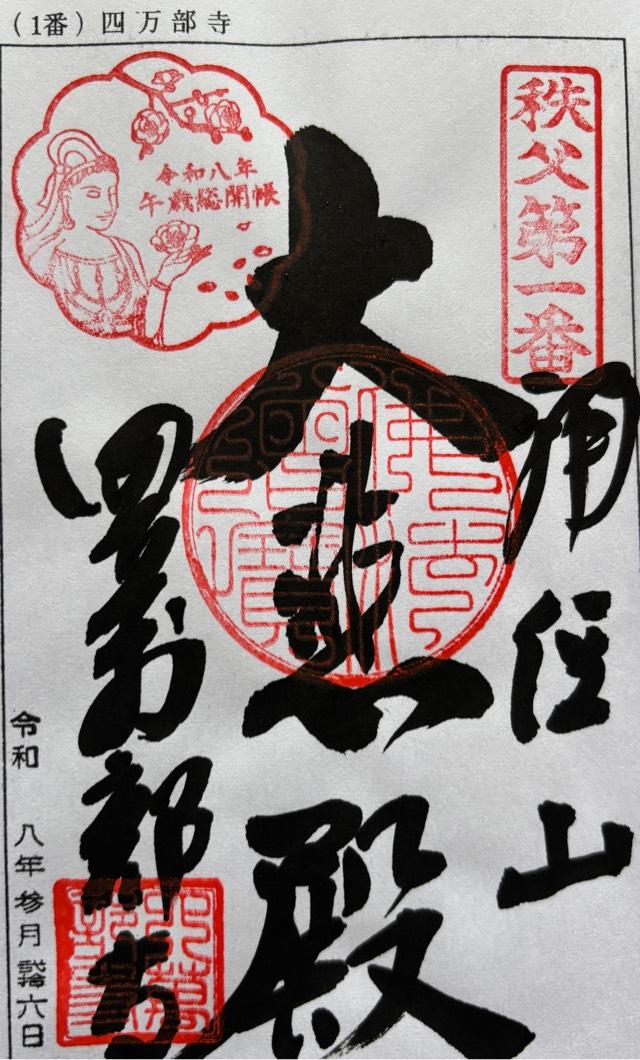 （1番）四万部寺
秩父第一番
令和八年
午歳総開帳
誦経山
大悲殿
四萬部寺
佛法僧寶
令和 八年参月弐拾六日